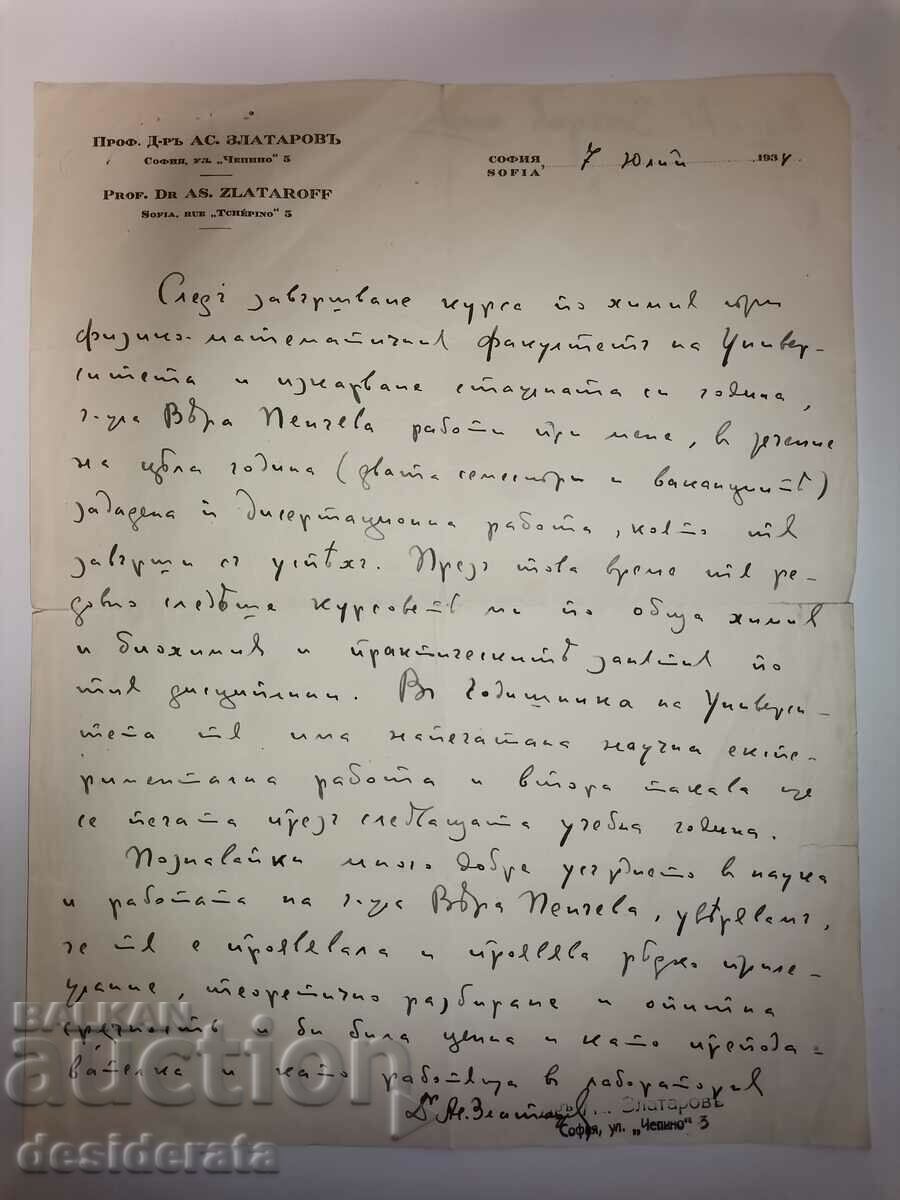 Проф. Д-ръ АС. ЗЛАТАРОВЪ
София, ул. „Чепино" 5
PROF. DR AS. ZLATAROFF
SOFIA, RUE „TCHÉPINO" 5
СОФИЯ, 7 Юлий 1934.
SOFIA
Следъ завършване курса по химия при
физико-математичния факултетъ на Универ-
ситета и изкарване стажната си година,
г-ца Вѣра Пенчева работи при мене, в течение
на цѣла година (двата семестри и ваканциитѣ)
зададена ѝ дисертационна работа, която тя
завърши съ успѣхъ. Презъ това време тя ре-
довно следѣше курсоветѣ ми по обща химия
и биохимия и практическитѣ занятия по
тия дисциплини. Въ Годишника на Универси-
тета тя има напечатана научна експе-
риментална работа и втора такава ще
се печата презъ следващата учебна година.
Познавайки много добре усърдието в наука
и работата на г-ца Вѣра Пенчева, увѣрявамъ,
че тя е проявявала и проявява рѣдко приле-
жание, теоретично разбиране и опитна
сръчность и би била ценна и като препода-
вателка и като работница в лаборатория
Дръ Ас. Златаров
Златаровъ
София, ул. „Чепино" 5
BALKAN
auction
desiderata